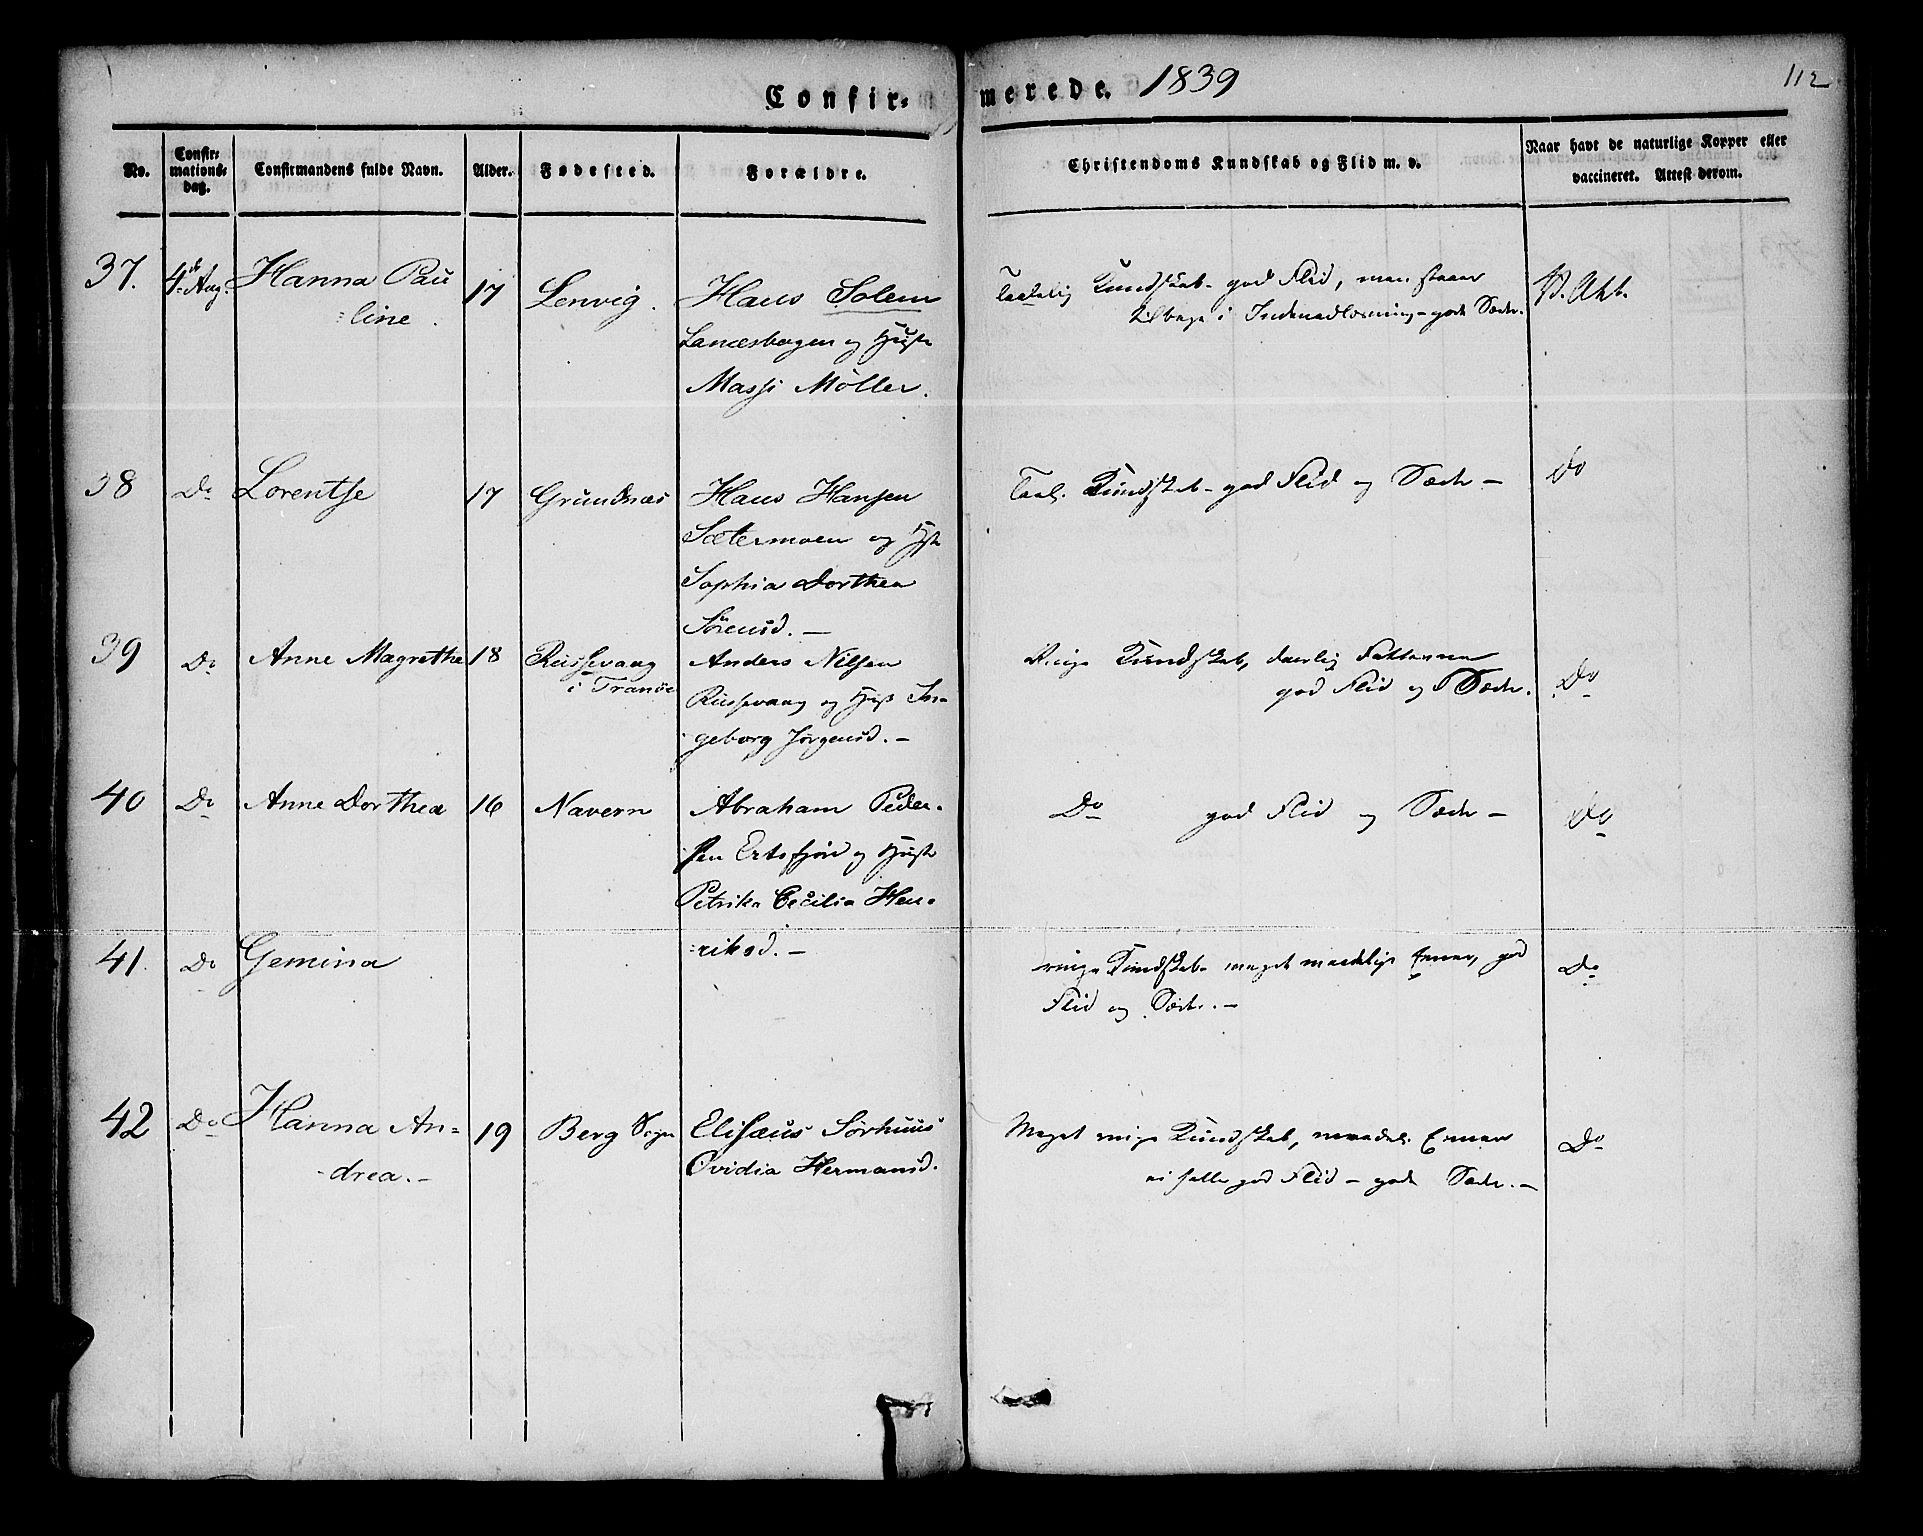 Confir-merede. 1839
112
No.
Confir-
mations-
dag.
Confirmandens fulde Navn.
Alder.
Fødested.
Forældre.
Christendoms Kundskab og Flid m. v.
Naar havt de naturlige Kopper eller
vaccineret. Attest derom.
37. 4de Aug. Hanna Pau
=line.
17 Lenvig.
Hans Solem
og Hust
Massi Møller.
Kundskab - god Flid, men staaer
tilbage i Indenadlæsning - gode Sæder.
V. Att.
38 Do Lorentse 17 Grundnæs
Hans Hansen
Sætermoen og Hst
Sophia Dorthea
Sörensd. -
Taal. Kundskab - god Flid og Sæder -
Do
39 Do Anne Magrethe 18 Russevaag
i Tranöe
Anders Nilsen
Russevaag og Hust In-
geborg Jørgensd. -
Ringe Kundskab, daarlig Fatteevne
god Flid og Sæder.
Do
40 Do Anne Dorthea 16 Navern
Abraham Peder-
sen Ertsfjord og Hust
Petrika Cecilia Hen-
=riksd. -
Do god Flid og Sæder -
Do
41. Do Gemina
ringe Kundskab meget maadelige Evner, god
Flid og Sæder. -
Do
42 Do Hanna An=
-drea. -
19 Berg Sogn
Elisæus Sörhuus
Ovidia Hermansd.
Meget ringe Kundskab, maadel. Evner
god Flid - gode Sæder. -
Do